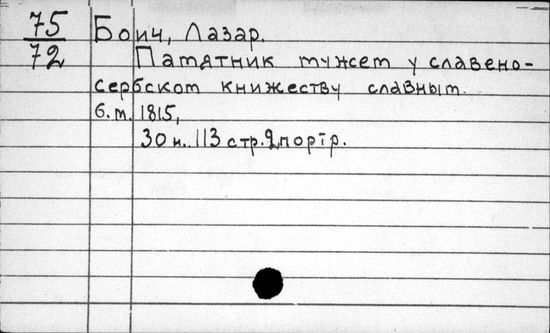 75
72
Боич, Лазар.
Памятник мужем у славено-
сербском книжеству славным.
б.м. 1815,
30 н. 113 стр. 2 портр.